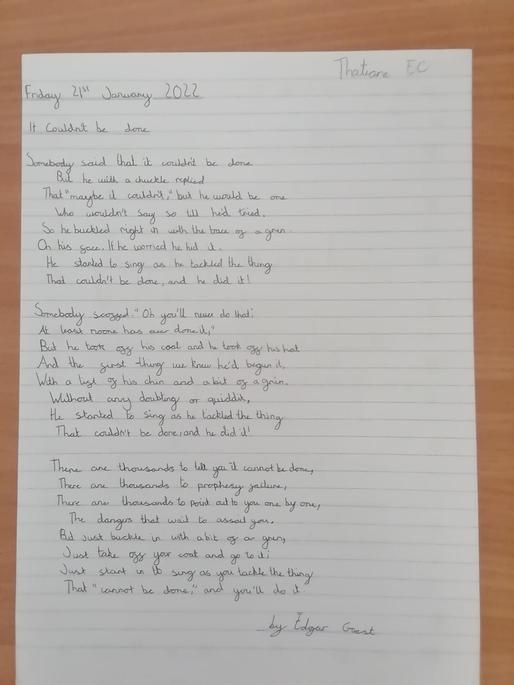 Thatiane EC
Friday 21st January 2022
It Couldn't be done
Somebody said that it couldn't be done
But he with a chuckle replied
That "maybe it couldn't," but he would be one
Who wouldn't say so till he'd tried.
So he buckled right in with the trace of a grin
On his face. If he worried he hid it.
He started to sing as he tackled the thing
That couldn't be done, and he did it!
Somebody scoffed: "Oh you'll never do that;
At least noone has ever done it,"
But he took off his coat and he took off his hat
And the first thing we knew he'd begun it.
With a lift of his chin and a bit of a grin.
Without any doubting or quiddit,
He started to sing as he tackled the thing
That couldn't be done, and he did it!
There are thousands to tell you it cannot be done,
There are thousands to prophesy failure,
There are thousands to point out to you one by one,
The dangers that wait to assail you.
But just buckle in with a bit of a grin,
Just take off your coat and go to it;
Just start in to sing as you tackle the thing
That "cannot be done," and you'll do it
by Edgar Guest